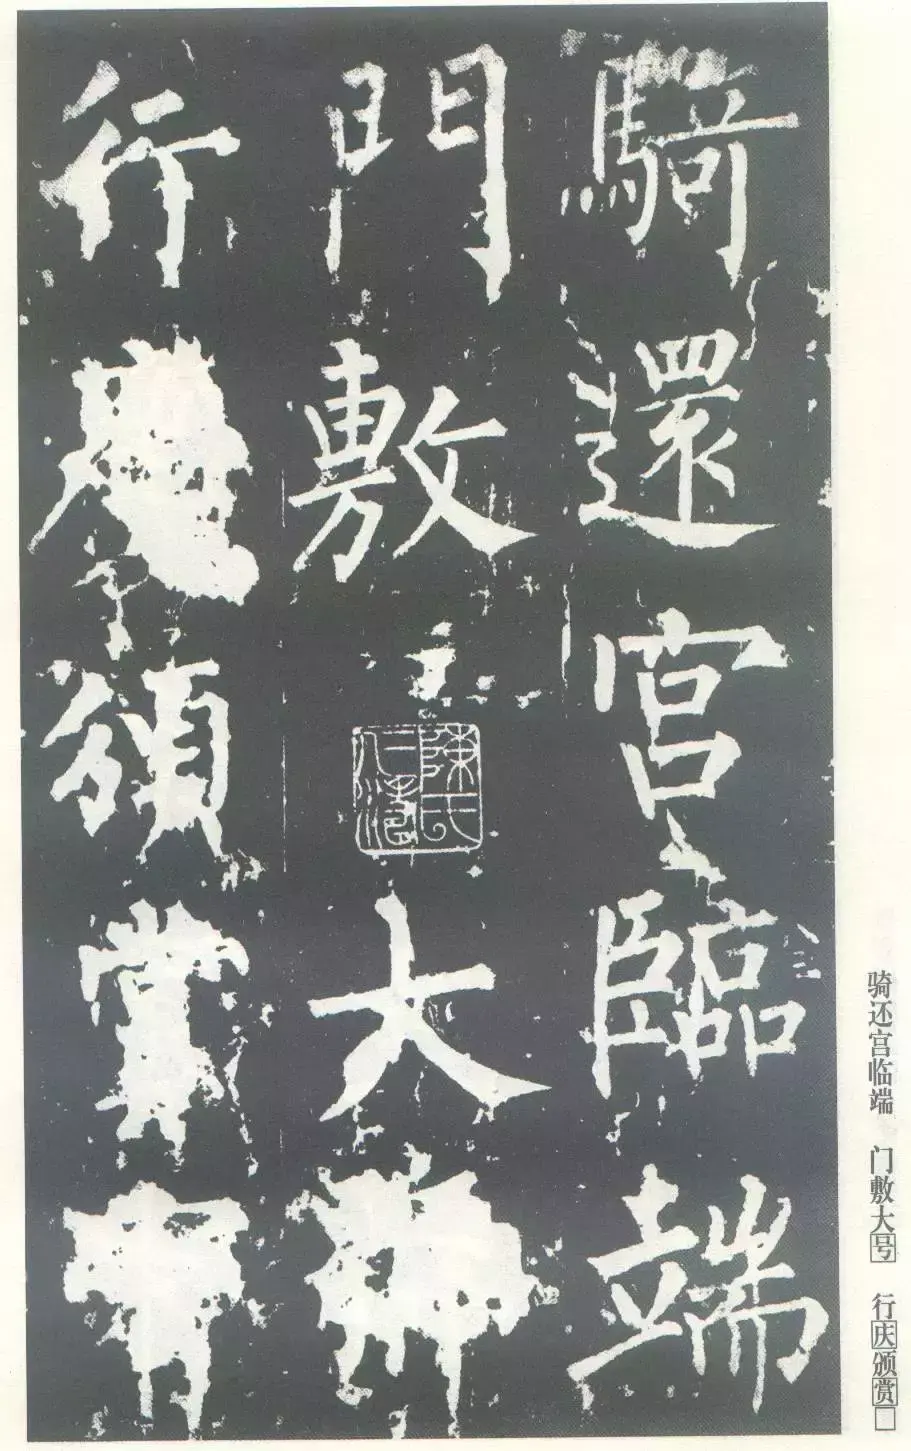 騎還宮臨端
門敷大
行頒賞
陳氏仁濤
骑还宫临端　门敷大号　行庆颁赏□